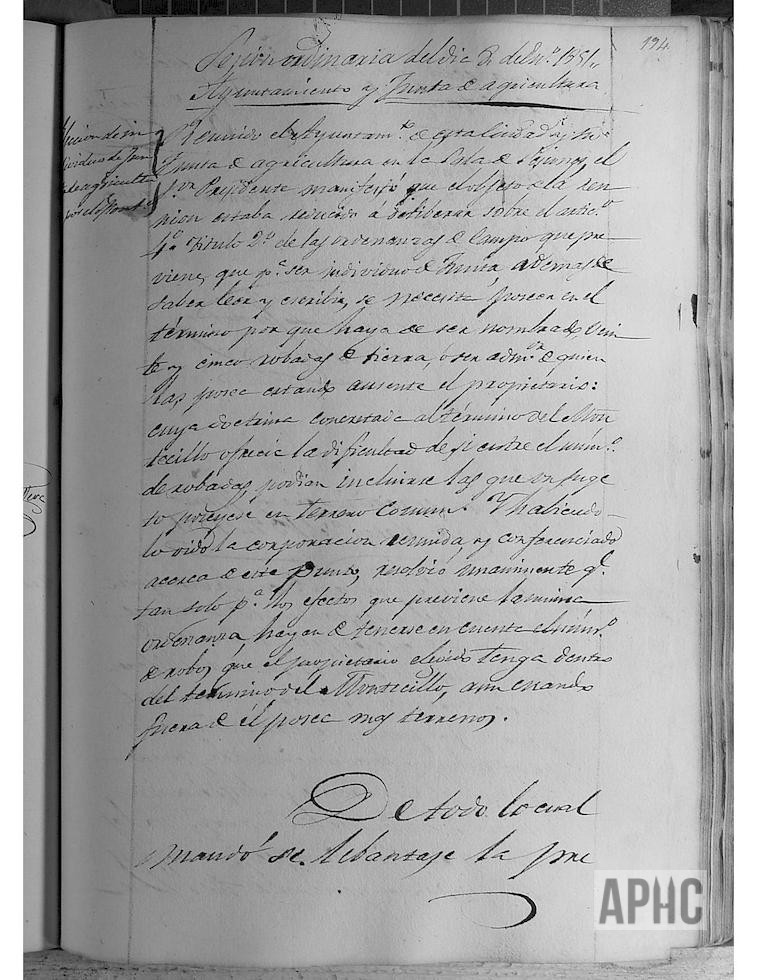 194.
Sesion ordinaria del dia 8 de En.º 1851,,
Ayuntamiento y Junta de agricultura
eccion de in
dividuos de Jun
ta de agricultu
por el Mont
Reunido el Ayuntam.to de esta ciudad y su
Junta de agricultura en la Sala de Sesiones, el
S.or Presidente manifestó que el objeto de la reu
nion estaba reducido á deliberar sobre el artic.º
4.º Titulo 2.º de las ordenanzas de Campo que pre
viene, que p.ª ser individuo de Junta, ademas de
saber leer y escribir, se necesita poseer en el
término por que haya de ser nombrado, Vein
te y cinco robadas de tierra, ó ser adm.or de quien
las posea estando ausente el propietario:
cuya doctrina concretada al término del Mon
tecillo ofrecia la dificultad de si entre el núm.º
de robadas, podian incluirse las que un suge
to poseyese en terreno Comun. Y habiendo
lo oido la corporacion reunida y conferenciado
acerca de este punto, resolvió unanimente q.e
tan solo p.ª los efectos que previene la misma
ordenanza, hayan de tenerse en cuenta el núm.º
de robos que el propietario elegido tenga dentro
del termino del Montecillo, aun cuando
fuera de él posea mas terrenos.
De todo lo cual
mandó se lebantase la pre
APHC